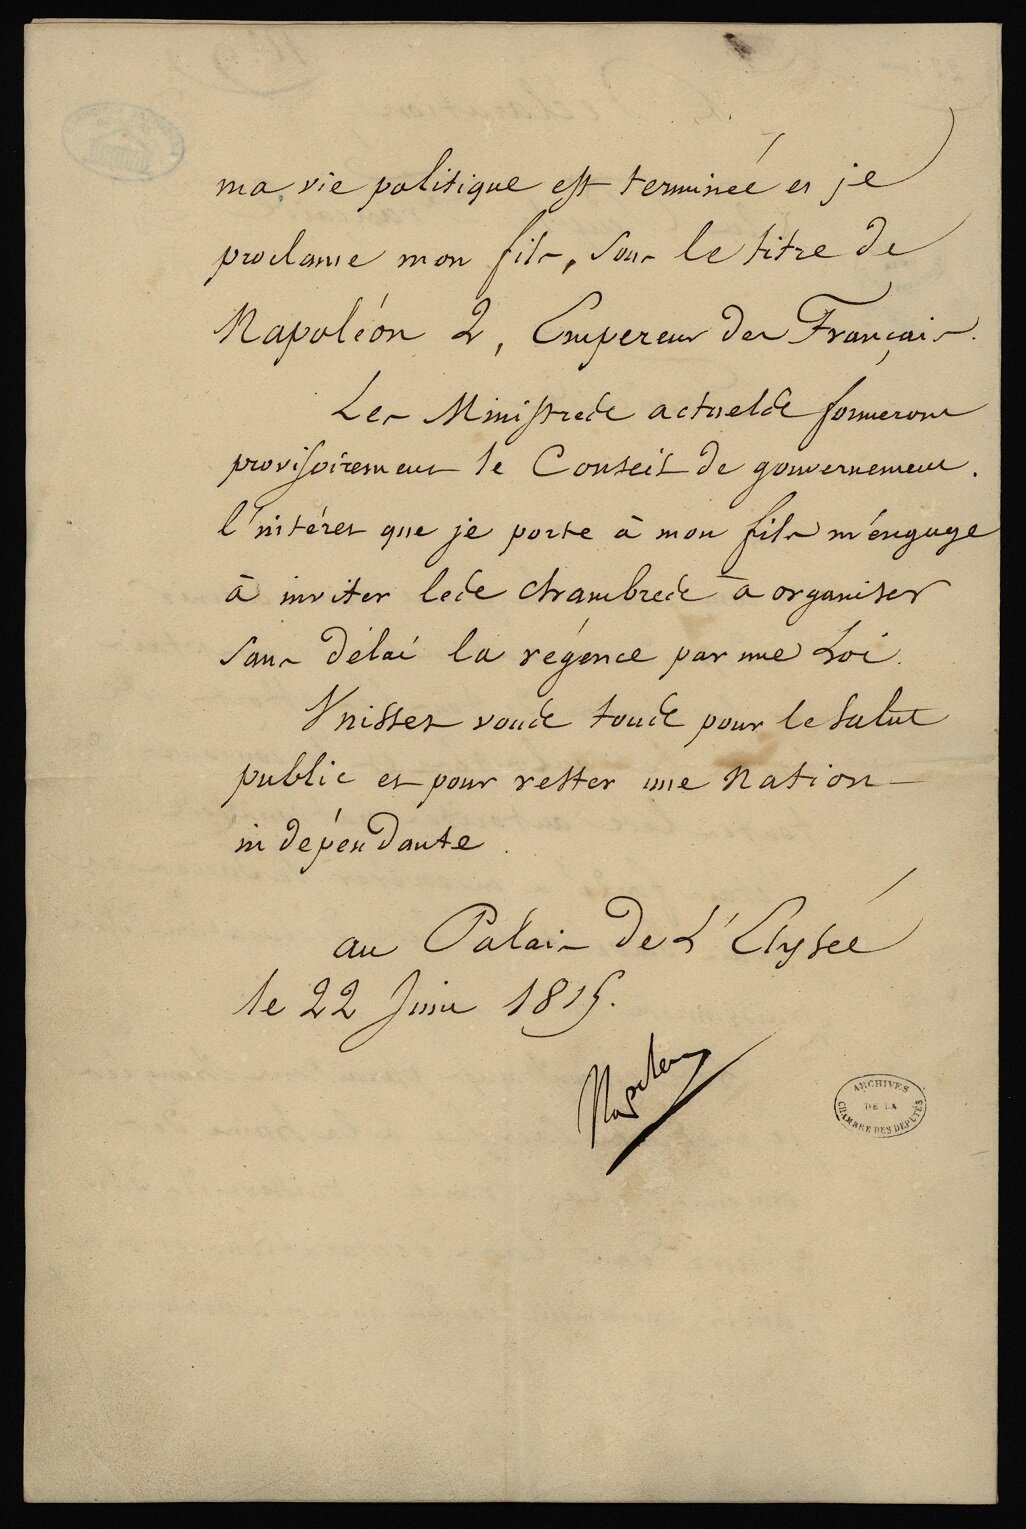 ma vie politique est terminée et je
proclame mon fils, sous le titre de
Napoléon 2, Empereur des Français.
Les Ministres actuels formeront
provisoirement le Conseil de gouvernement.
l'intéret que je porte à mon fils m'engage
à inviter les chambres à organiser
sans délai la régence par une Loi.
Unissez vous tous pour le salut
public et pour rester une nation
indépendante.
au Palais de L'Elysée
le 22 Juin 1815.
Napoleon
ARCHIVES
DE LA
CHAMBRE DES DEPUTÉS